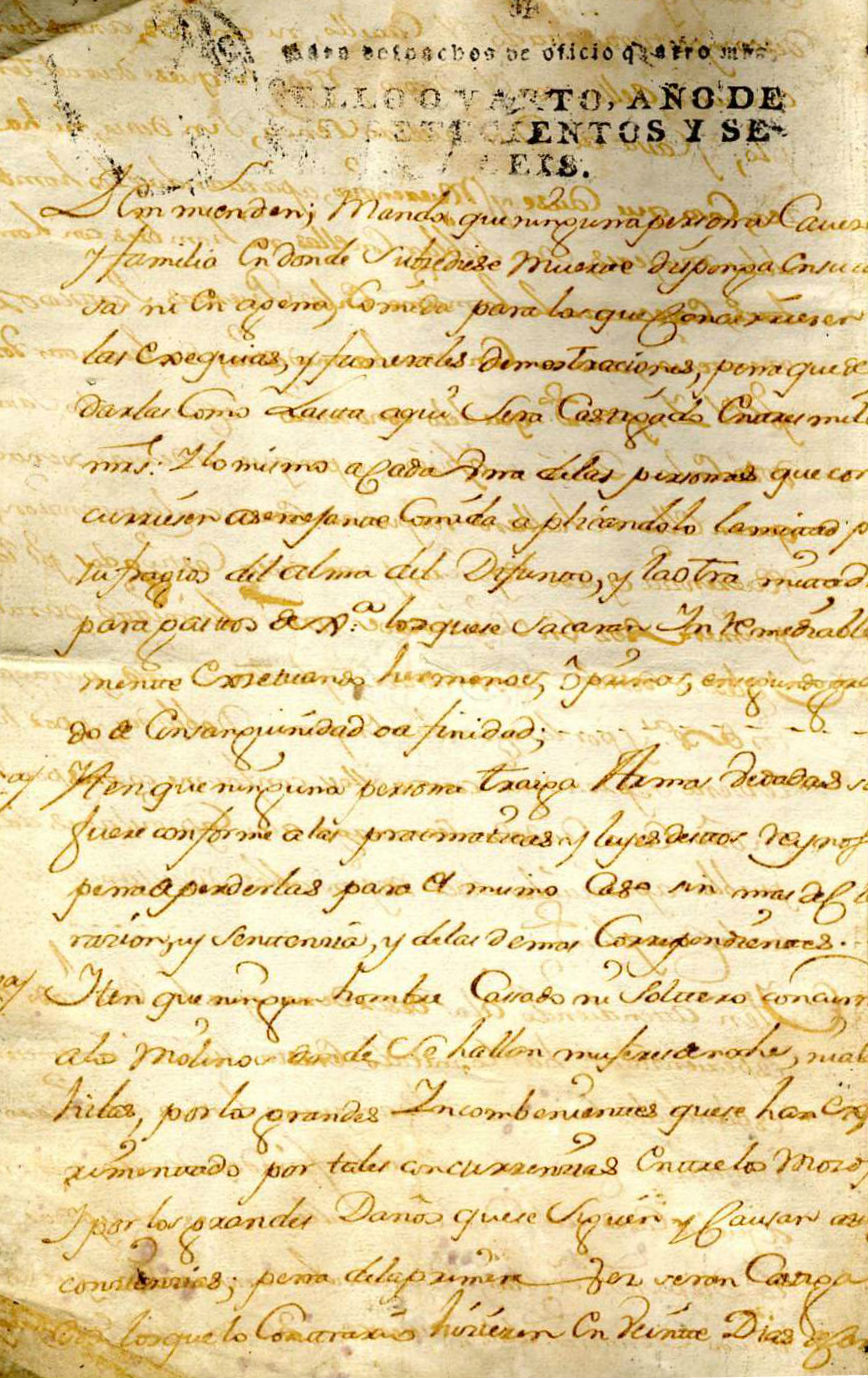 para despachos de oficio quatro mrs.
SELLO QVARTO, AÑO DE
SETECIENTOS Y SE-
EIS.
que ninguna persona Caver
Y familia En donde Subzediese Muerte disponga En su ca
sa ni En agena, Comida para los que Concurrieren
las Exequias, y funerales demostraciones, pena que de
darlas Como aqui Sera Castigado En tres mill
mrs: Y lo mismo a Cada Vna de las personas que con
curriesen a semejante Comida aplicandolo la mitad p
sufragios del alma del Difunto, y la otra mitad
para gastos de los que se sacaran Yrremediable
mente Exsetuando hermanos, o primos, en segundo gra
do de Consanguinidad o afinidad;
Yten que ninguna persona traiga Armas vedadas si
fuere conforme a las pracmaticas y leyes destos Reynos
pena de perderlas para el mismo Caso sin mas decla
razion, y Sentenzia, y de las demas Correspondientes.
Yten que ningun hombre Cassado ni Soltero concur
a los Molinos donde Se hallan mujeres de noche, ni a
hilas, por los grandes Yncombenientes que se han Exp
rimentado por tales concurrenzias Entre los Mozos
Y por los grandes Daños que se Siguen y Causan a
conzienzias; pena de la primera Vez seran Castiga
dos los que lo Contrario hizieren En Veinte Dias de Ca